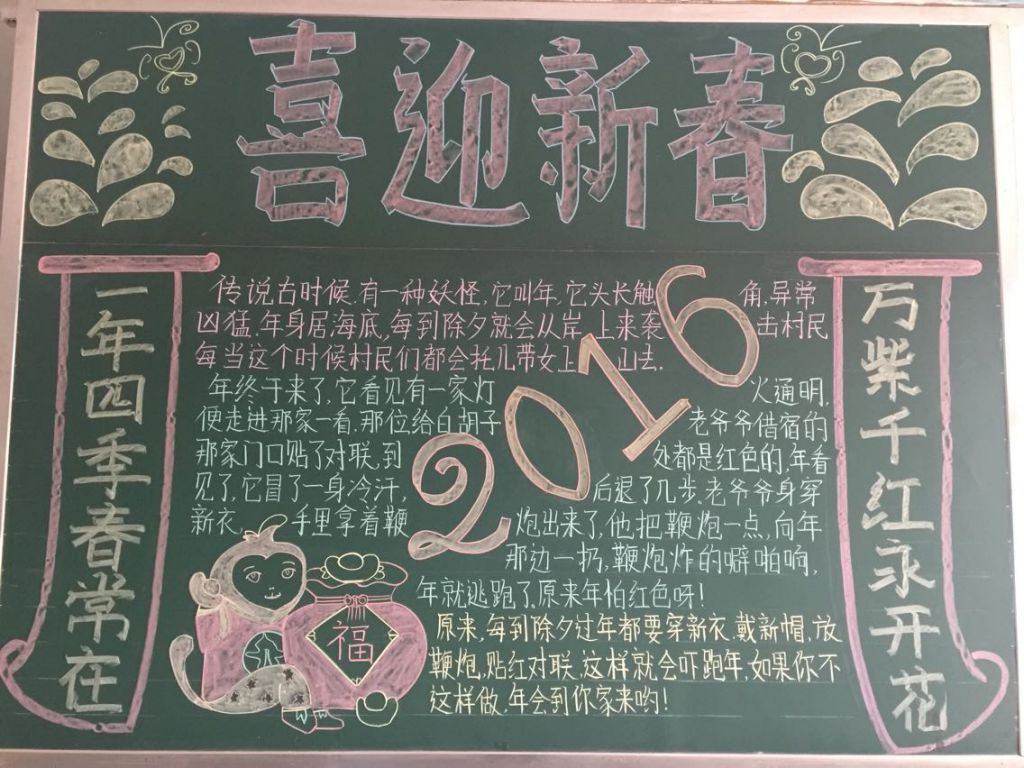 喜迎新春
一年四季春常在
传说古时候,有一种妖怪,它叫年,它头长触角,异常
凶猛,年身居海底,每到除夕就会从岸上来袭击村民
每当这个时候村民们都会托儿带女上山去.
年终于来了,它看见有一家灯火通明,
便走进那家一看,那位给白胡子老爷爷借宿的
那家门口贴了对联,到处都是红色的,年看
见了,它冒了一身冷汗,后退了几步,老爷爷身穿
新衣,手里拿着鞭炮出来了,他把鞭炮一点,向年
那边一扔,鞭炮炸的噼啪响,
年就逃跑了,原来年怕红色呀!
原来,每到除夕过年都要穿新衣,戴新帽,放
鞭炮,贴红对联,这样就会吓跑年,如果你不
这样做,年会到你家来哟!
2016
福
万紫千红永开花